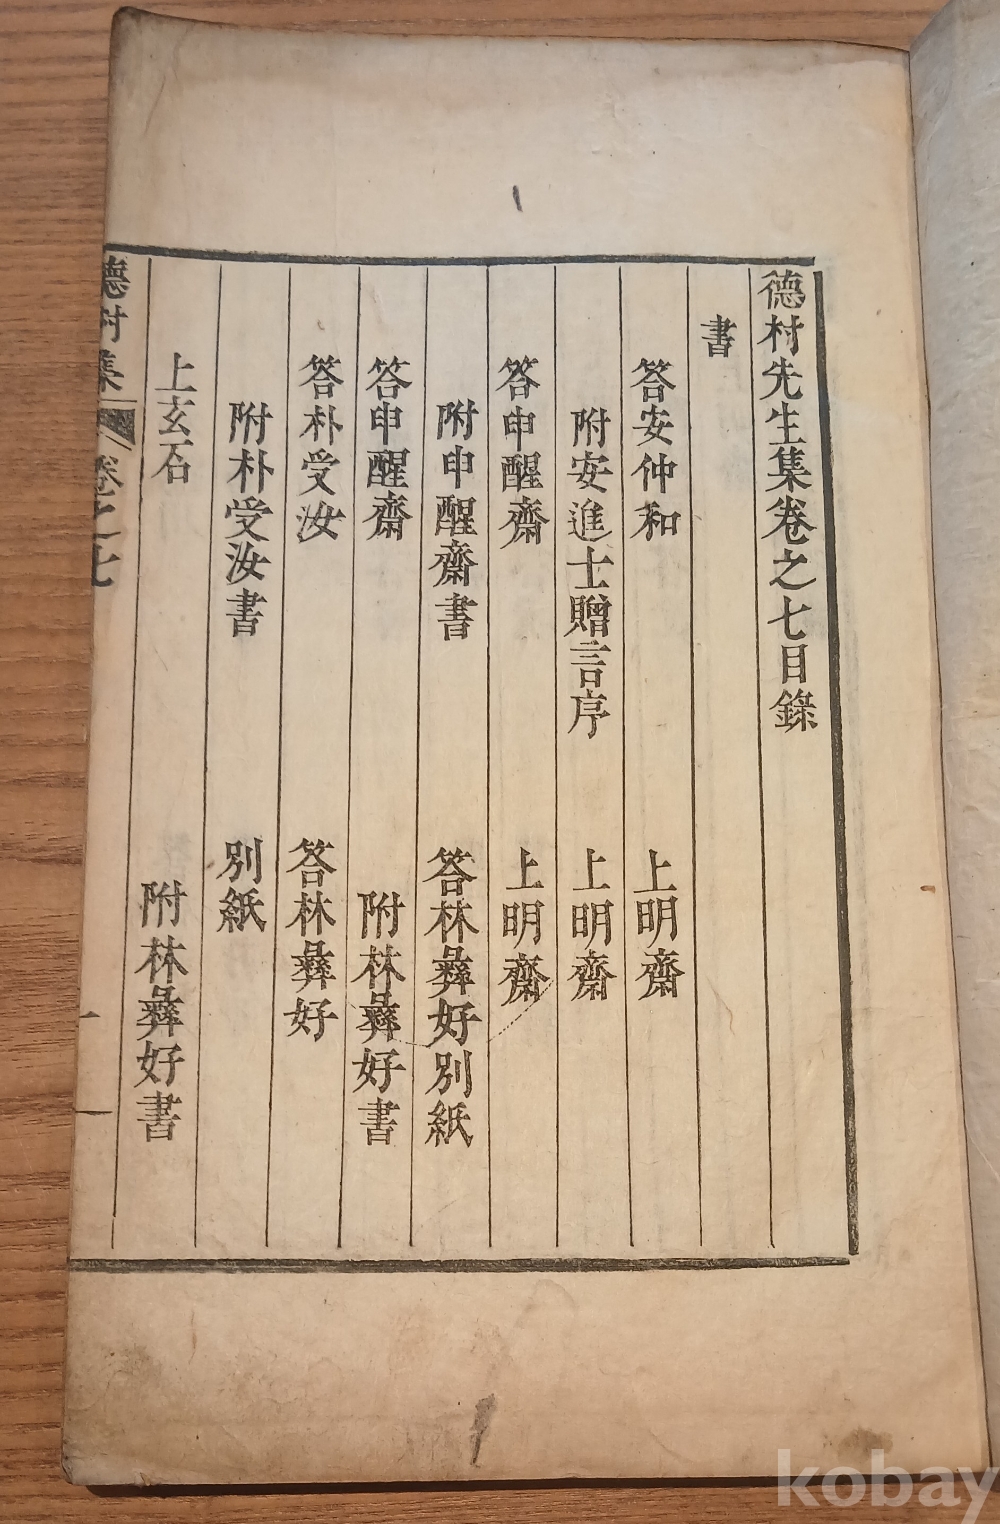 德村先生集卷之七目錄
書
答安仲和 上明齋
附安進士贈言序 上明齋
答申醒齋 上明齋
附申醒齋書 答林彝好別紙
答申醒齋 附林彝好書
答朴受汝 答林彝好
附朴受汝書 別紙
上玄石 附林彝好書
德村集 卷之七 一
kobay